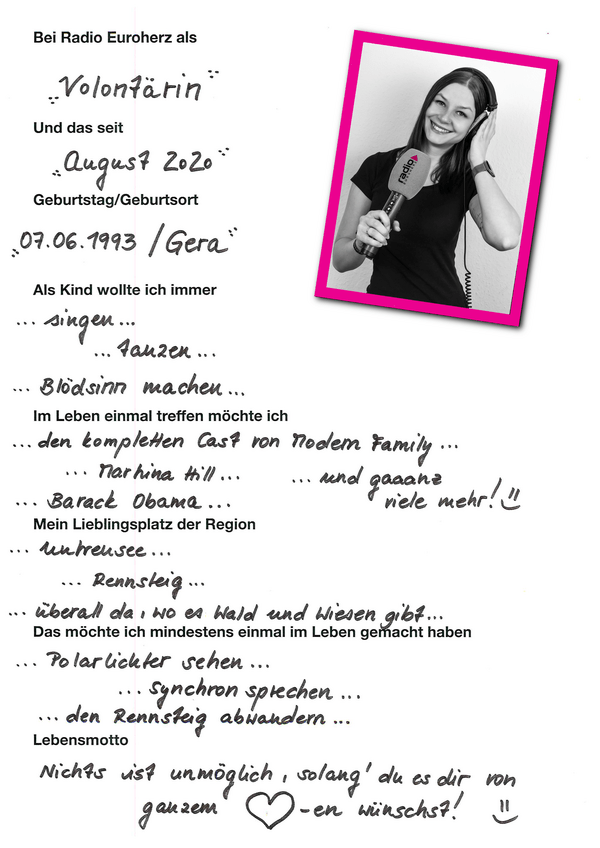 Bei Radio Euroherz als
„Volontärin"
Und das seit
„August 2020"
Geburtstag/Geburtsort
„07.06.1993 / Gera"
Als Kind wollte ich immer
... singen ...
... tanzen ...
... Blödsinn machen ...
Im Leben einmal treffen möchte ich
... den kompletten Cast von Modern Family ...
... Martina Hill ... ... und gaaanz
... Barack Obama ... viele mehr!
Mein Lieblingsplatz der Region
... Untreusee ...
... Rennsteig ...
... überall da, wo es Wald und Wiesen gibt ...
Das möchte ich mindestens einmal im Leben gemacht haben
... Polarlichter sehen ...
... synchron sprechen ...
... den Rennsteig abwandern ...
Lebensmotto
Nichts ist unmöglich, solang' du es dir von
ganzem ♡-en wünschst!
radio